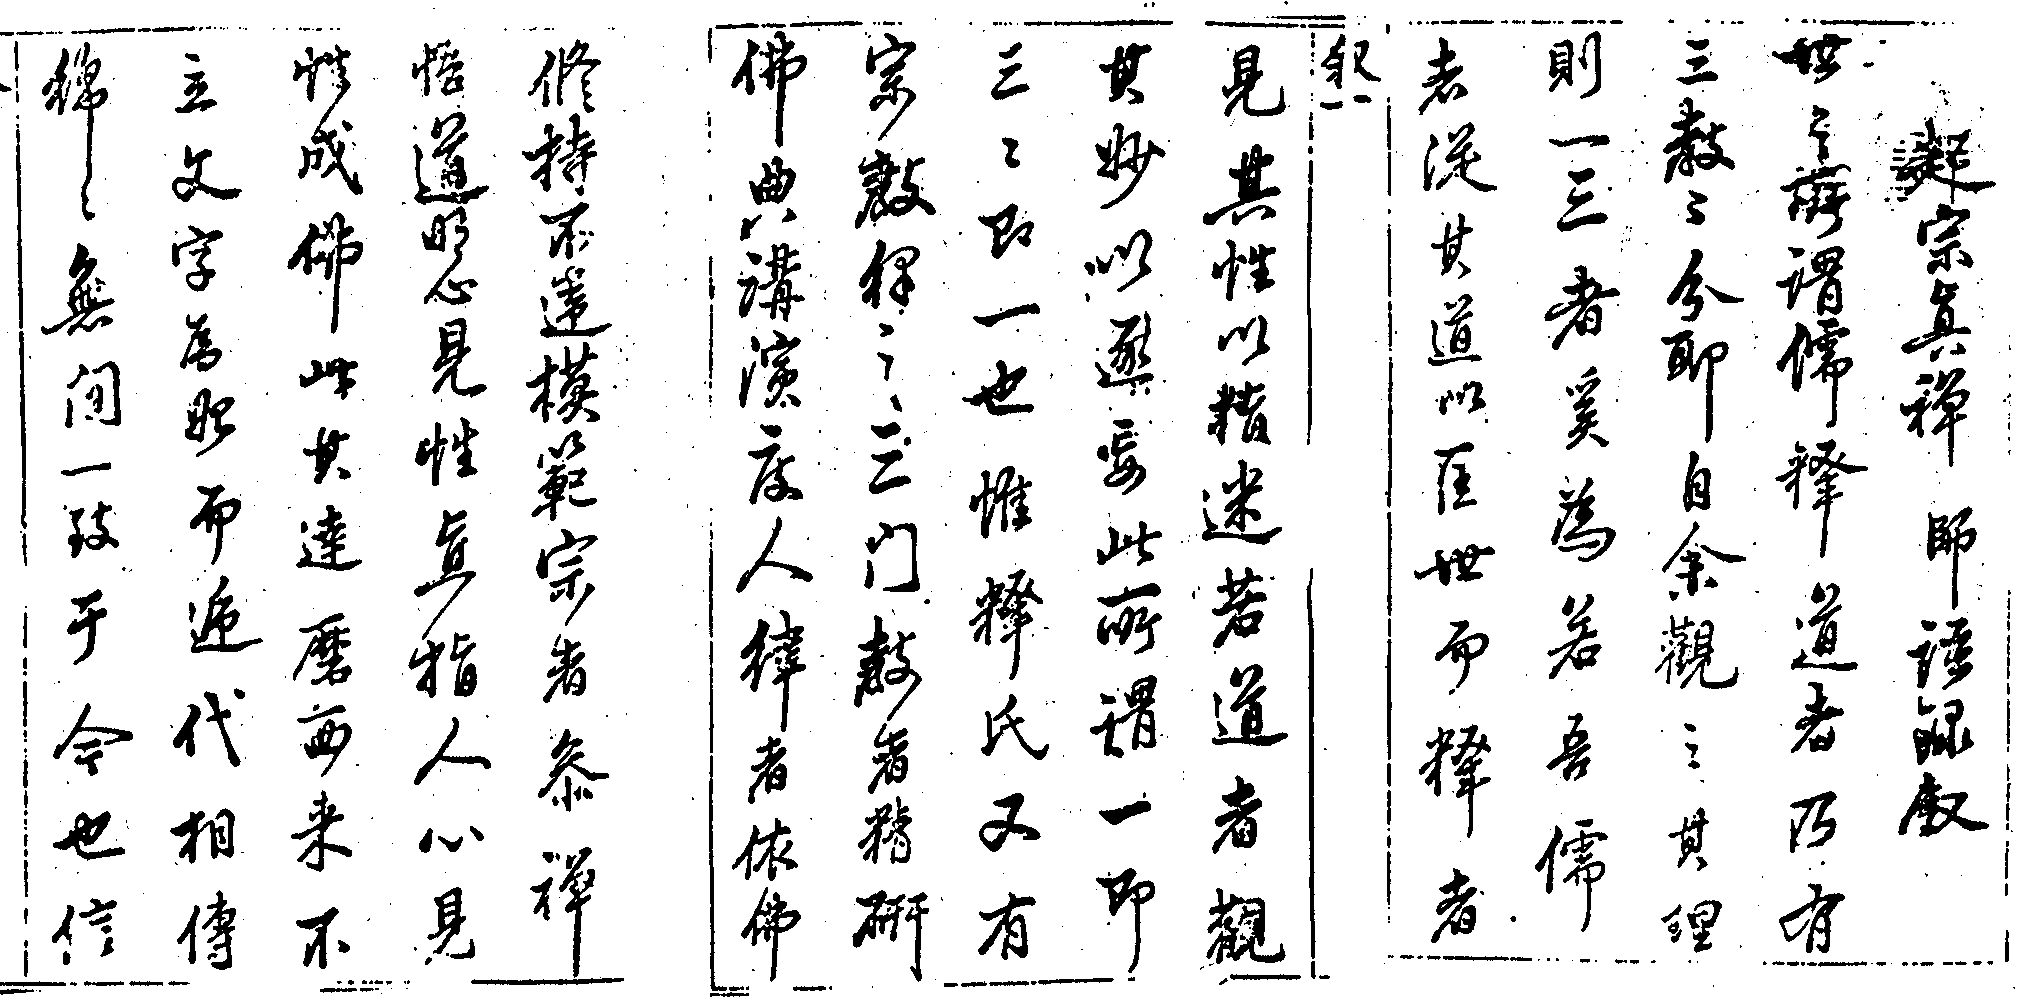 起宗真禪師語録敘
世之所謂儒釋道者乃有
三教之分耶自余觀之其理
則一三者奚為若吾儒
者從其道以匡世而釋者
敘一
見其性以精迷若道者觀
其妙以邀妄此所謂一即
三三即一也惟釋氏又有
宗教律之三門教者精研
佛典講演度人律者依佛
修持不違模範宗者參禪
悟道明心見性直指人心見
性成佛此其達磨西来不
立文字為然而遞代相傳
綿綿無間一致于今也信